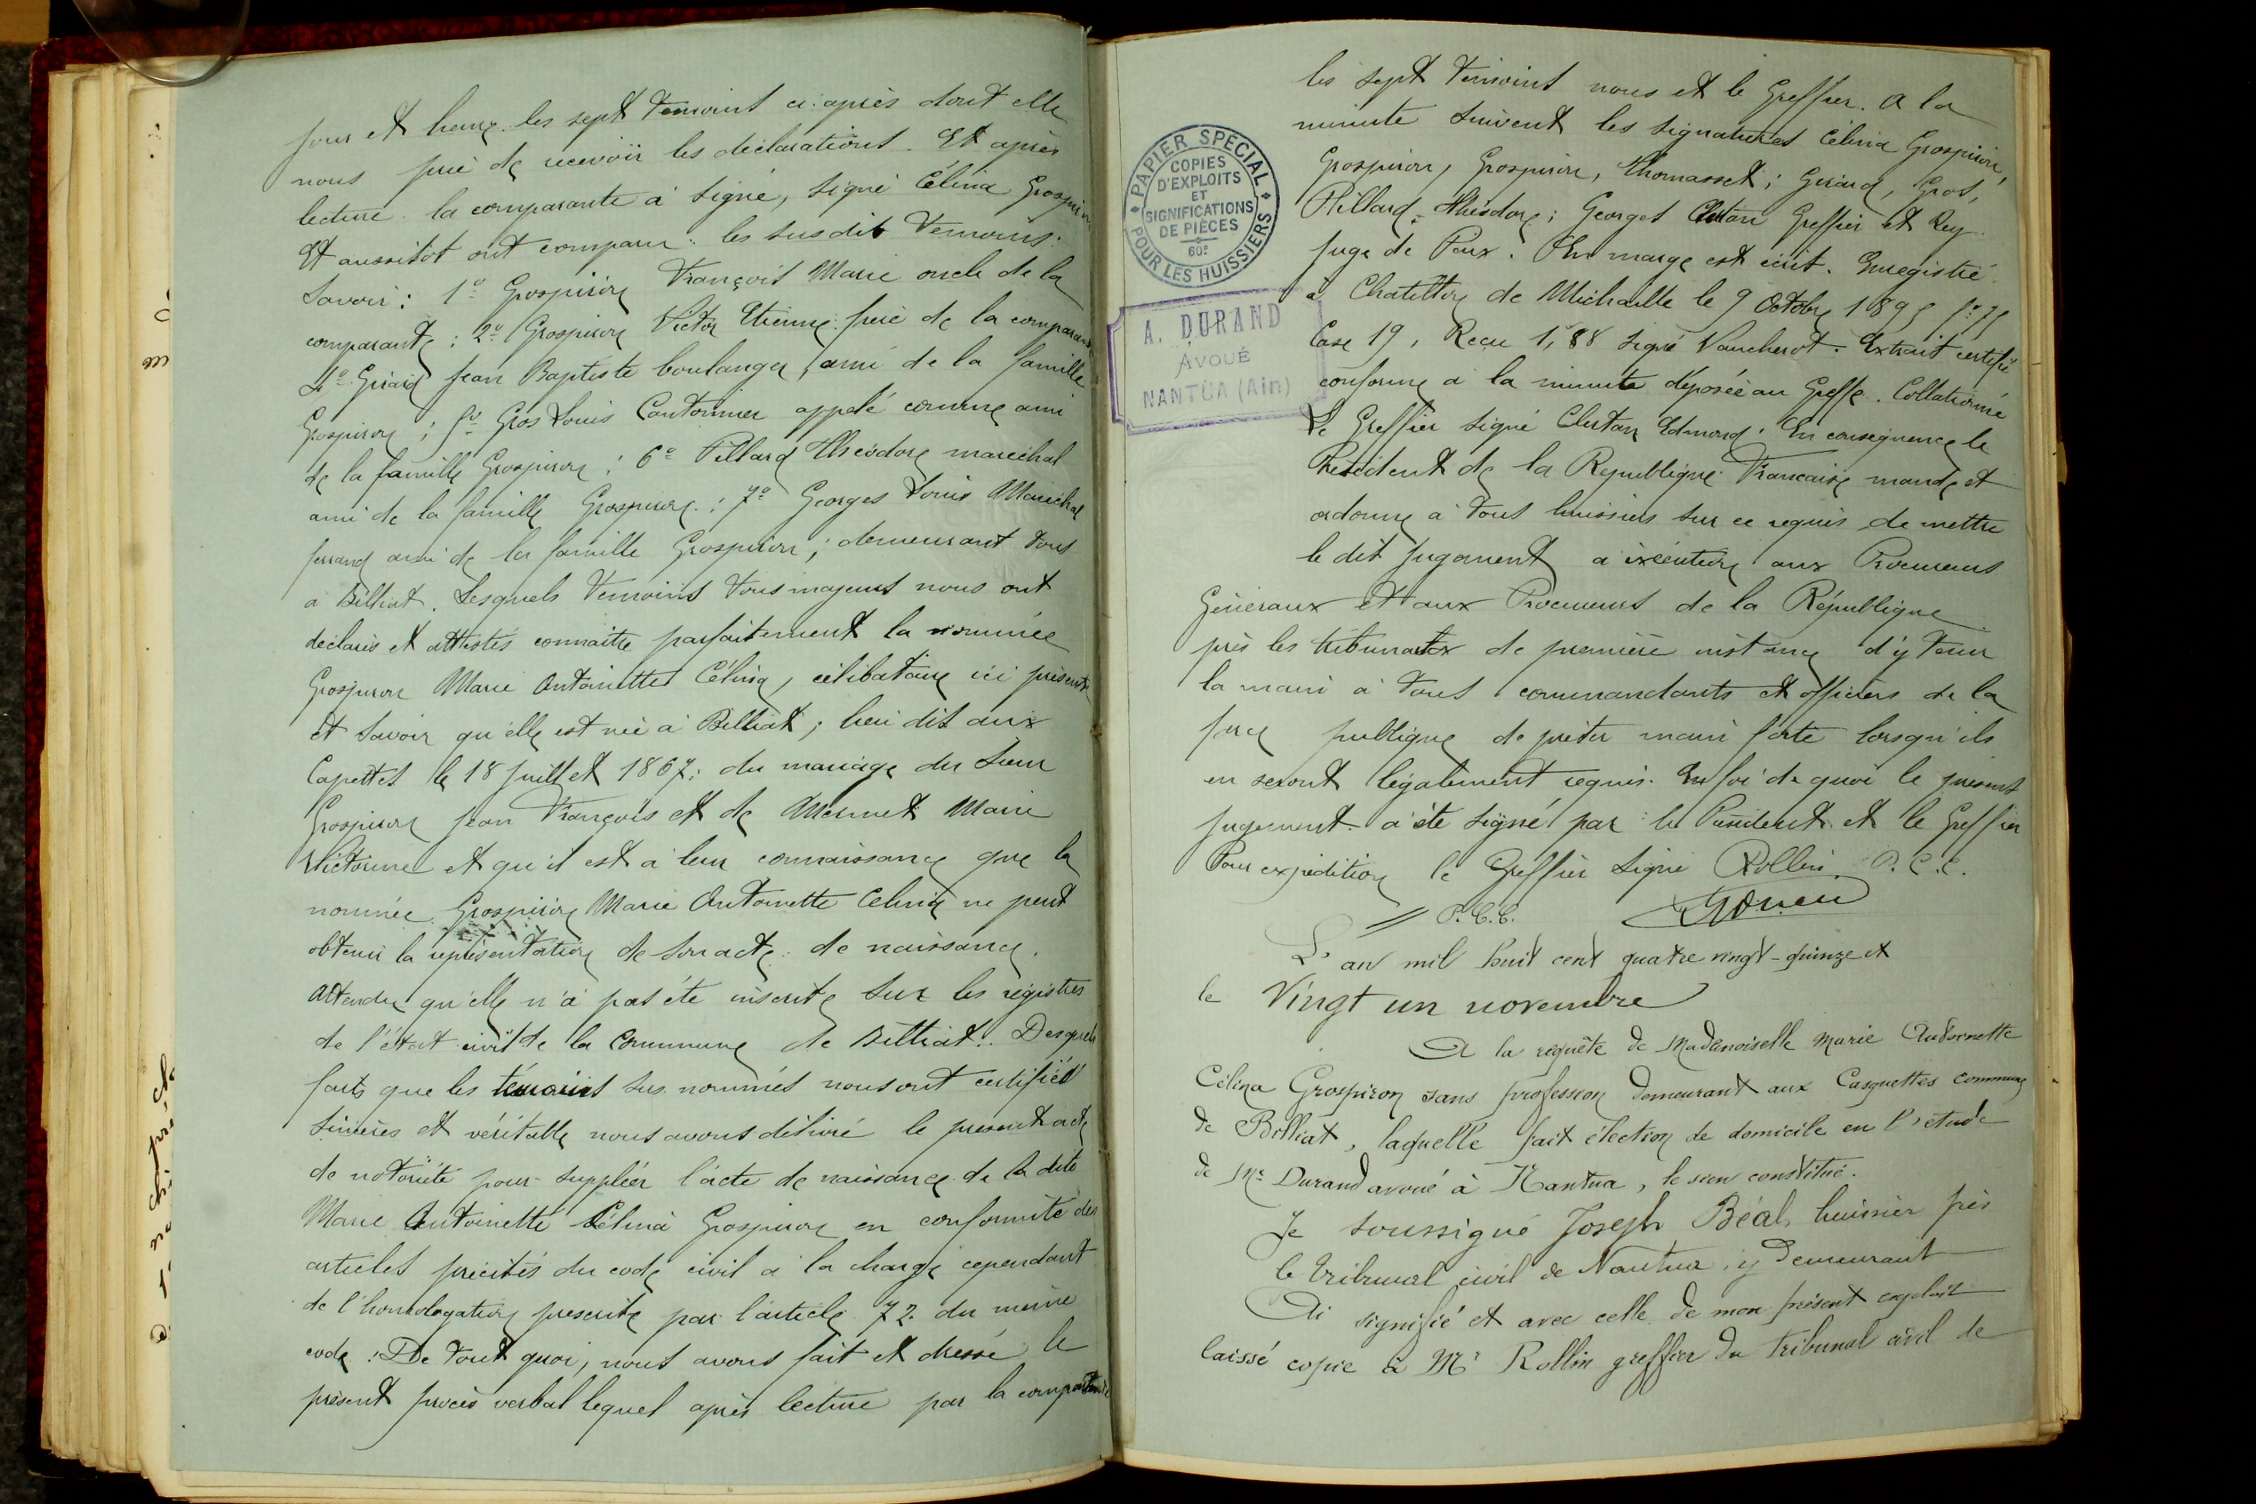 jour et heure les sept témoins ci-après dont elle
nous prie de recevoir les déclarations. Et après
lecture la comparante a signé, signé Célina Grospiron
Et aussitot ont comparu : les susdits témoins.
Savoir : 1º Grospiron François Marie oncle de la
comparante ; 2º Grospiron Victor Etienne de la comparante
4º Girard Jean Baptiste boulanger, ami de la famille
Grospiron ; 5º Gros Louis Cantonnier appelé comme ami
de la famille Grospiron ; 6º Pillard Théodore maréchal
ami de la famille Grospiron ; 7º Georges Louis Maréchal
ferrand ami de la famille Grospiron ; demeurant tous
à Billiat. Lesquels témoins tous majeurs nous ont
déclarés et attestés connaitre parfaitement la nommée
Grospiron Marie Antoinette Célina, célibataire ici présente
et savoir qu'elle est née à Billiat ; lieu dit aux
Capettes le 18 juillet 1867 ; du mariage du sieur
Grospiron Jean François et de Mermet Marie
Victorine et qu'il est à leur connaissance que la
nommée Grospiron Marie Antoinette Célina ne peut
obtenir la représentation de son acte de naissance.
attendu qu'elle n'a pas été inscrite sur les registres
de l'état civil de la Commune de Billiat. Desquels
faits que les témoins sus nommés nous ont certifiés
sincères et véritable nous avons délivré le present acte
de notoriété pour suppléer l'acte de naissance de la dite
Marie Antoinette Célina Grospiron en conformité des
articles précités du code civil à la charge cependant
de l'homologation prescrite par l'article 72 du même
code. De tout quoi, nous avons fait et dressé le
présent procès verbal lequel après lecture par la comparante
les sept témoins nous et le Greffier. A la
minute suivent les signatures Célina Grospiron,
Grospiron, Grospiron, Thomasset ; Girard, Gros,
Pillard, Théodore ; Georges Greffier et Rey
juge de Paix. En marge est écrit. Enregistré
à Chatillon de Michaille le 9 Octobre 1895 fº
Case 19, Reçu 1,88 signé Vaucherot. Extrait certifié
conforme à la minute déposée au Greffe. Collationné
Le Greffier signé Edmond. En conséquence le
Président de la République Française mande et
ordonne à tous huissiers sur ce requis de mettre
le dit jugement à exécution aux Procureurs
Généraux et aux Procureurs de la République
près les tribunaux de première instance d'y tenir
la main à tous commandants et officiers de la
force publique de prêter main forte lorsqu'ils
en seront légalement requis. En foi de quoi le present
jugement a été signé par le Président et le Greffier
Pour expédition le Greffier Signé Rollin. P. C. C.
P. C. C.
L'an mil huit cent quatre vingt-quinze et
le Vingt un novembre
A la requête de Mademoiselle Marie Antoinette
Célina Grospiron sans profession demeurant aux Casquettes commune
de Billiat, laquelle fait élection de domicile en l'étude
de Me Durand avoué à Nantua, le sien constitué.
Je soussigné Joseph Béal, huissier près
le tribunal civil de Nantua, y demeurant
Ai signifié et avec celle de mon présent exploit
laissé copie à Mr Rollin greffier du tribunal civil de
PAPIER SPÉCIAL
COPIES
D'EXPLOITS
ET
SIGNIFICATIONS
DE PIÈCES
60c
POUR LES HUISSIERS
A. DURAND
AVOUÉ
NANTUA (Ain)